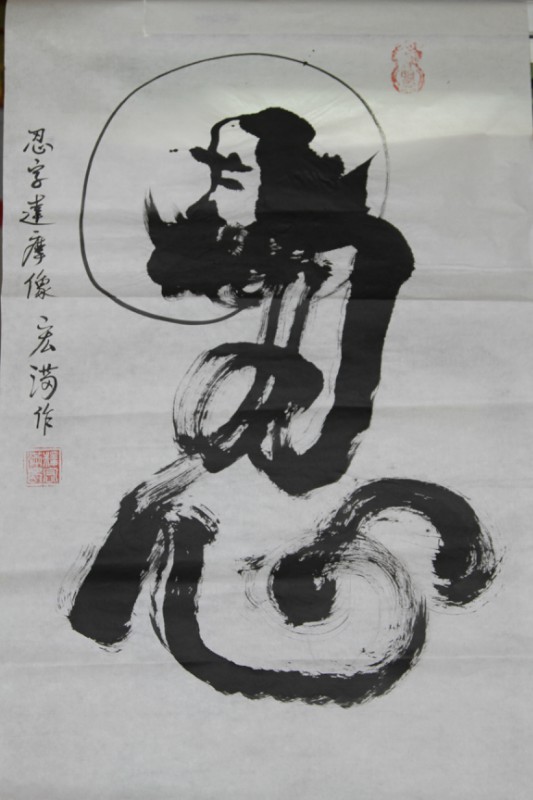 忍
忍字達摩像 宏满作